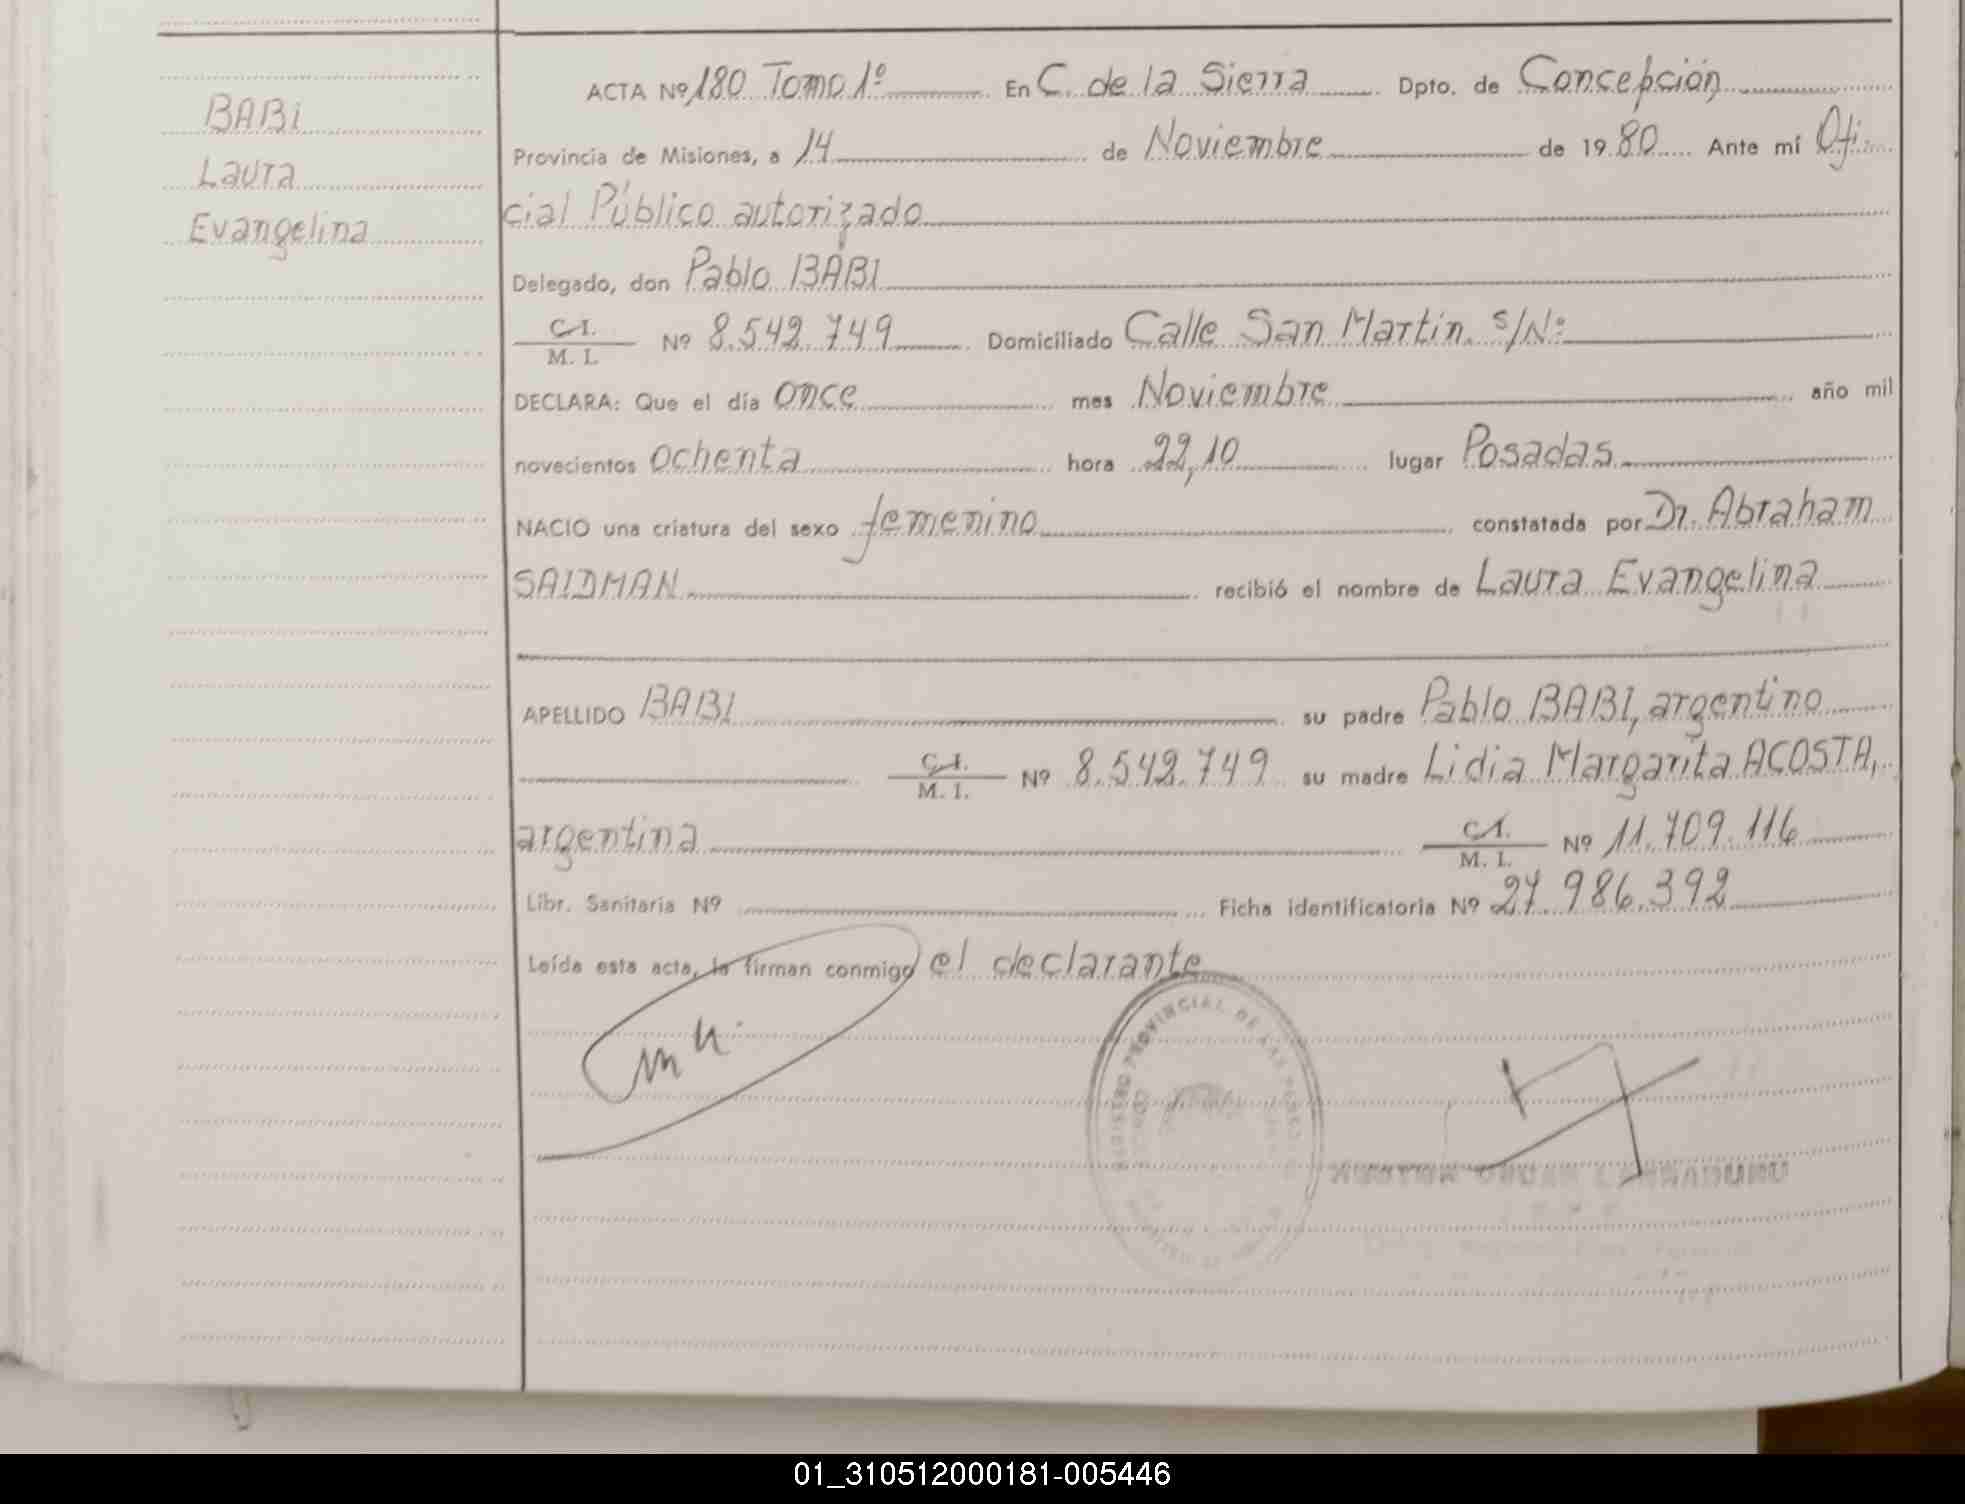 BABI
Laura
Evangelina
ACTA Nº 180 Tomo 1º En C. de la Sierra Dpto. de Concepción
Provincia de Misiones, a 14 de Noviembre de 1980 Ante mí Ofi-
cial Público autorizado
Delegado, don Pablo BABI
C.I. / M. I. Nº 8.542.749 Domiciliado Calle San Martín. S/Nº
DECLARA: Que el día once mes Noviembre año mil
novecientos ochenta hora 22,10 lugar Posadas
NACIO una criatura del sexo femenino constatada por Dr. Abraham
SAIDMAN recibió el nombre de Laura Evangelina
APELLIDO BABI su padre Pablo BABI, argentino
C.I. / M. I. Nº 8.542.749 su madre Lidia Margarita ACOSTA,
argentina C.I. / M. I. Nº 11.709.116
Libr. Sanitaria Nº Ficha identificatoria Nº 27.986.392
Leída esta acta, la firman conmigo el declarante
REGISTRO PROVINCIAL DE LAS
01_310512000181-005446